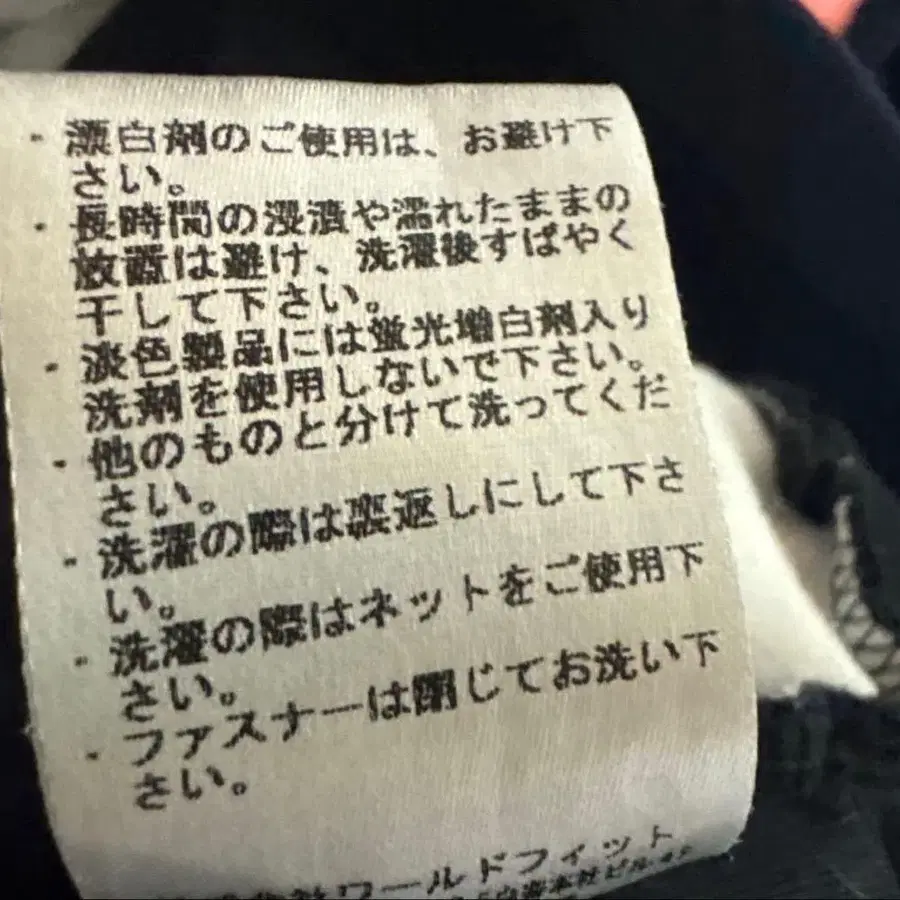 ・漂白剤のご使用は、お避け下
さい。
・長時間の浸漬や濡れたままの
放置は避け、洗濯後すばやく
干して下さい。
・淡色製品には蛍光増白剤入り
洗剤を使用しないで下さい。
・他のものと分けて洗ってくだ
さい。
・洗濯の際は裏返しにして下さ
い。
・洗濯の際はネットをご使用下
さい。
・ファスナーは閉じてお洗い下
さい。
ワールドフィット
本社ビル